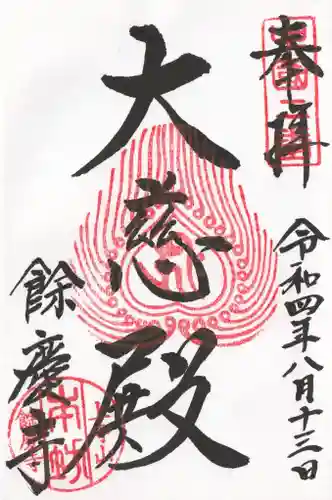 奉拝
令和四年八月十三日
大慈殿
餘慶寺